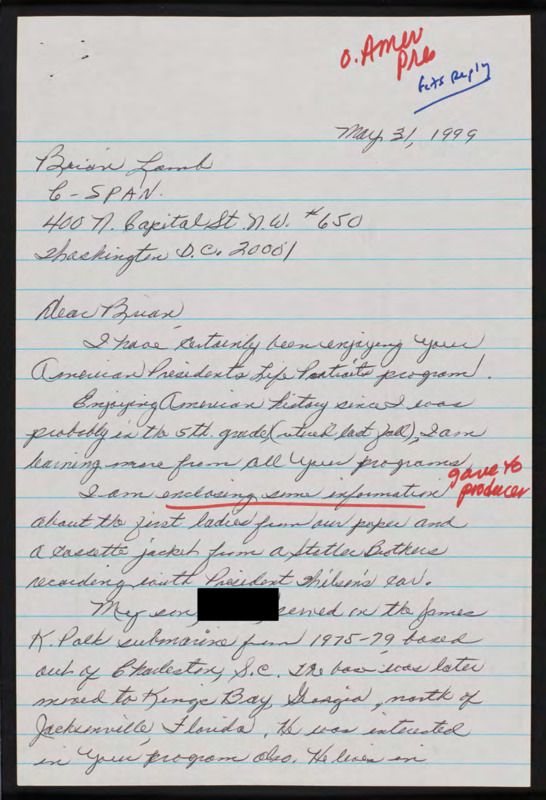 O. Amer
Pres
Gets Reply
May 31, 1999
Brian Lamb
C-SPAN.
400 N. Capital St. N.W. #650
Washington D.C. 20001
Dear Brian
I have certainly been enjoying your
American Presidents Life Portraits program!
Enjoying American history since I was
probably in the 5th grade (retired last fall), I am
learning more from all your programs
I am enclosing some information
gave to
producer
about the first ladies from our paper and
a cassette jacket from a Statler Brothers
recording with President Wilson's car.
My son, served on the James
K. Polk submarine from 1975-79 based
out of Charleston, S.C. The base was later
moved to Kings Bay, Georgia, north of
Jacksonville, Florida. He was interested
in your program also. He lives in